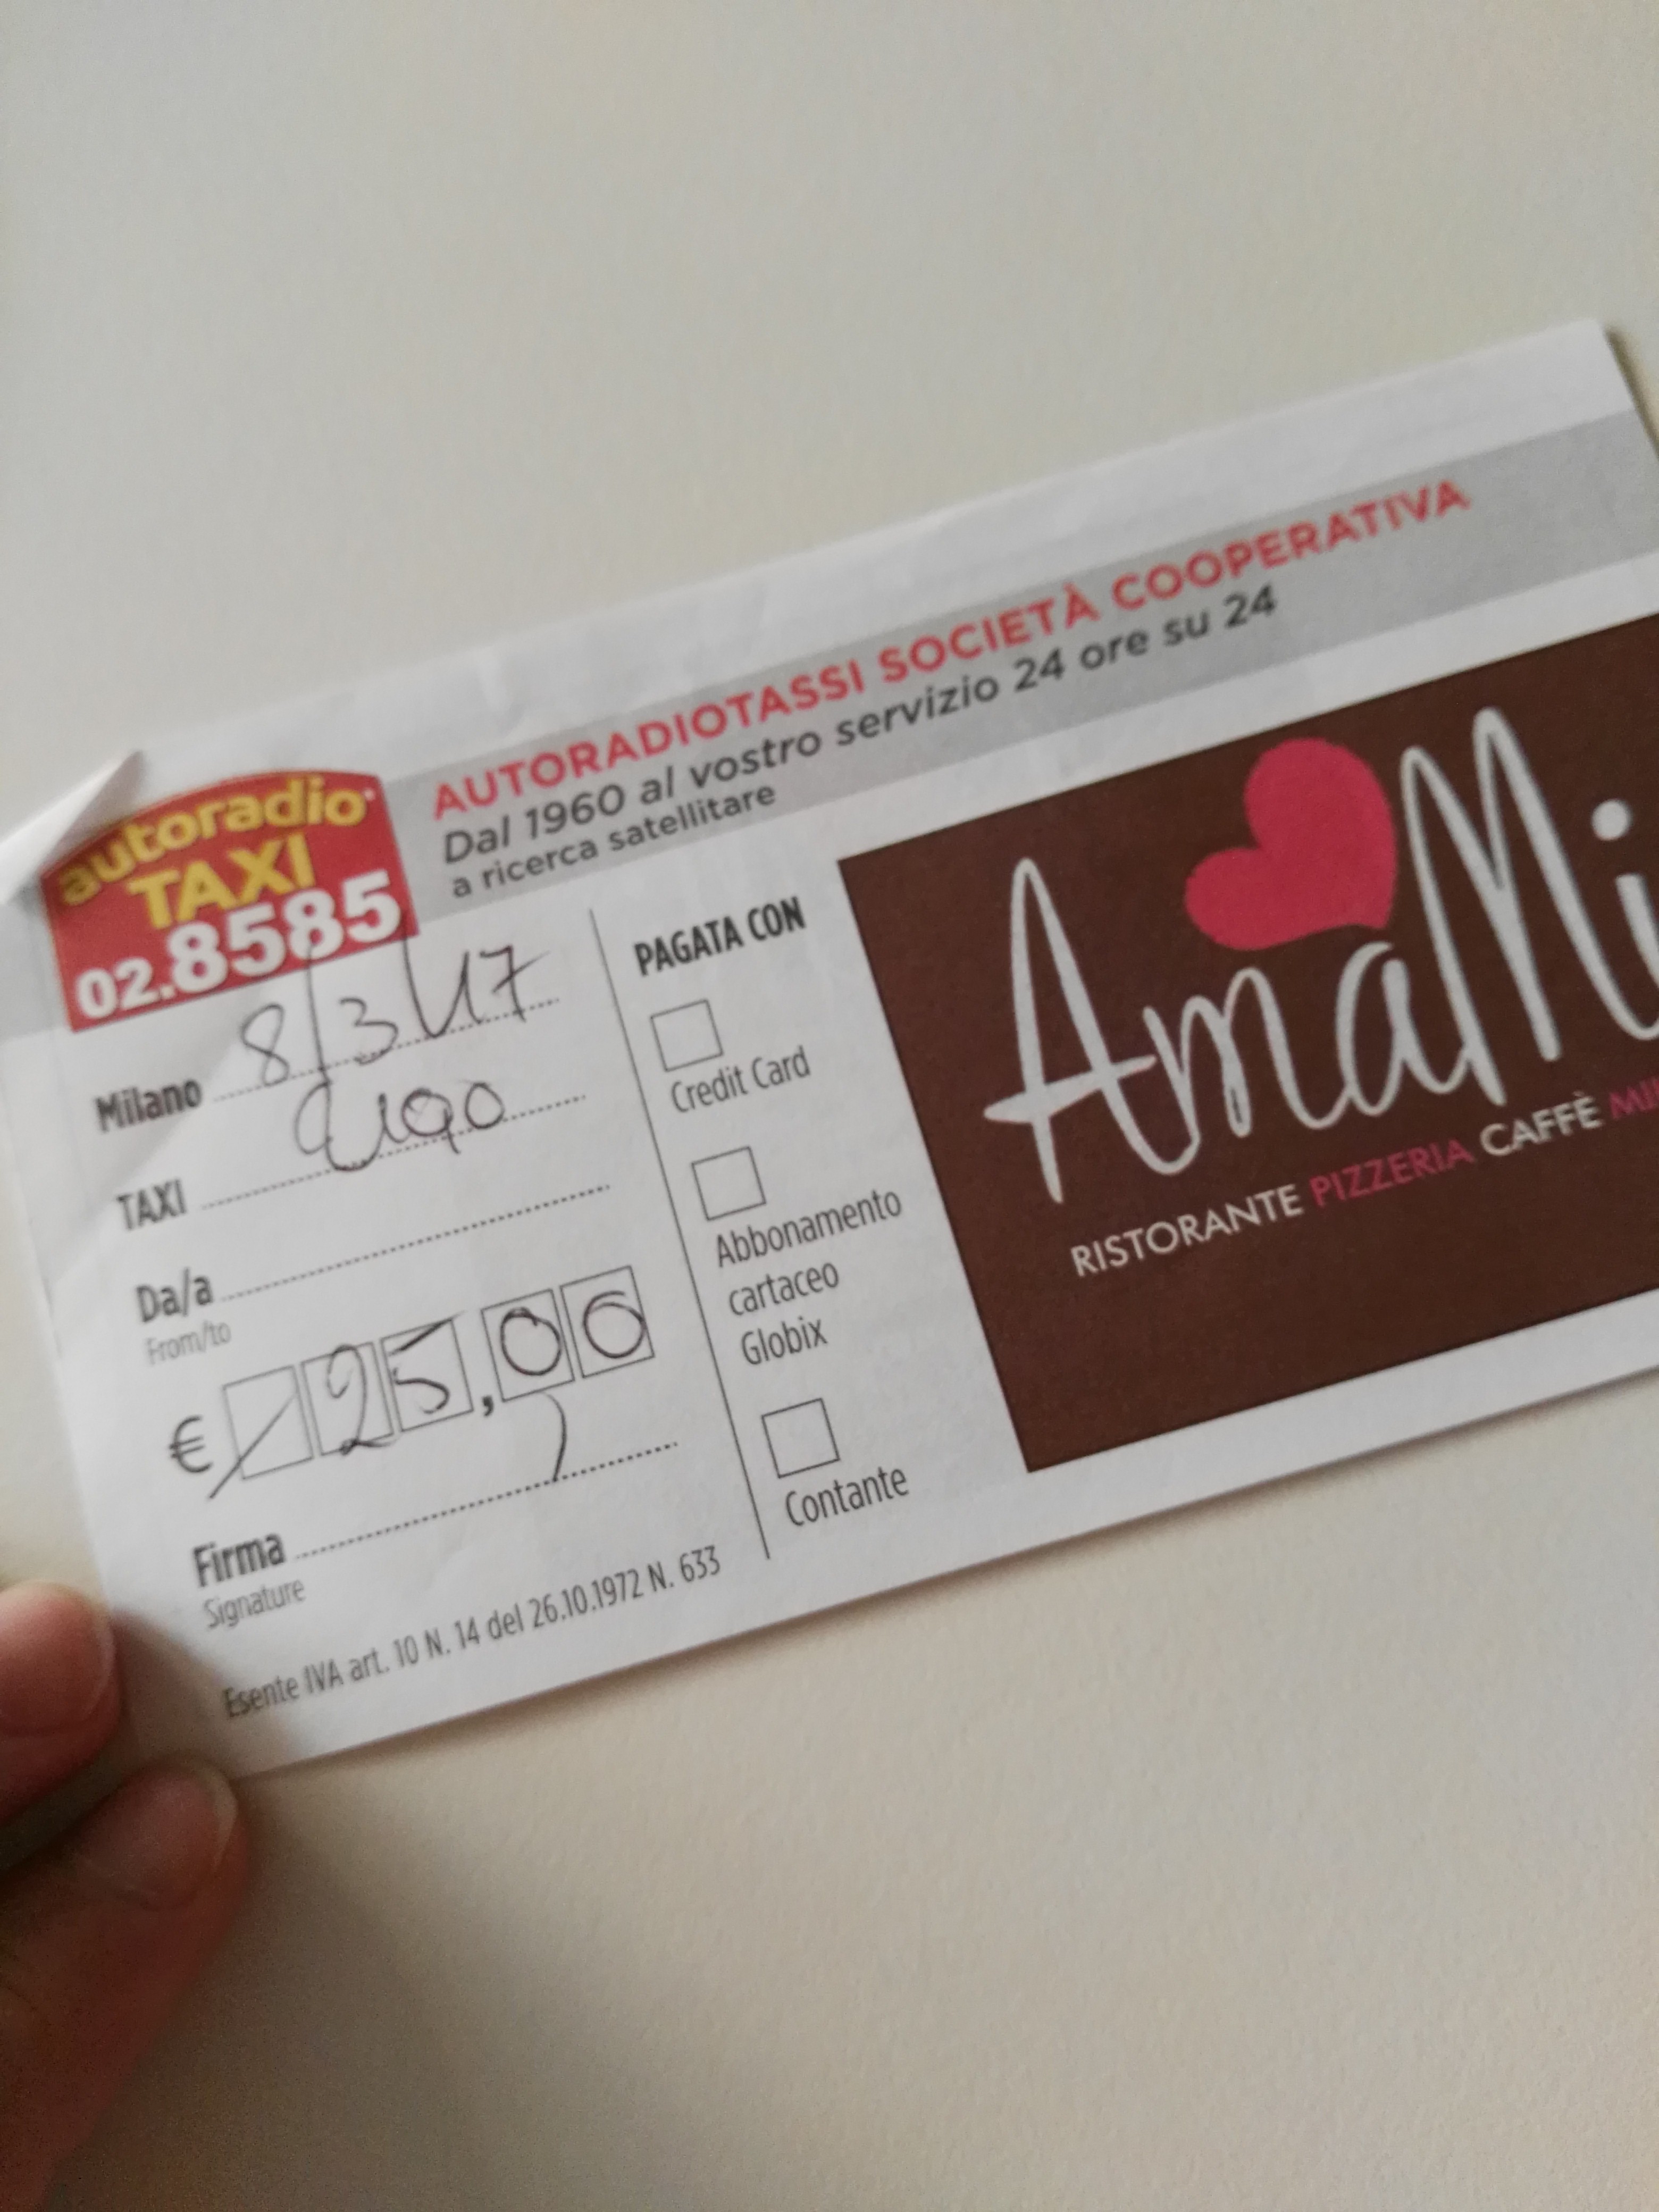 AUTORADIOTASSI SOCIETÀ COOPERATIVA
Dal 1960 al vostro servizio 24 ore su 24
a ricerca satellitare
autoradio
TAXI
02.8585
Milano 8/3/17
TAXI
Da/a
From/to
€ 25,00
Firma
Signature
Esente IVA art. 10 N. 14 del 26.10.1972 N. 633
PAGATA CON
Credit Card
Abbonamento
cartaceo
Globix
Contante
AmaMi
RISTORANTE PIZZERIA CAFFÈ